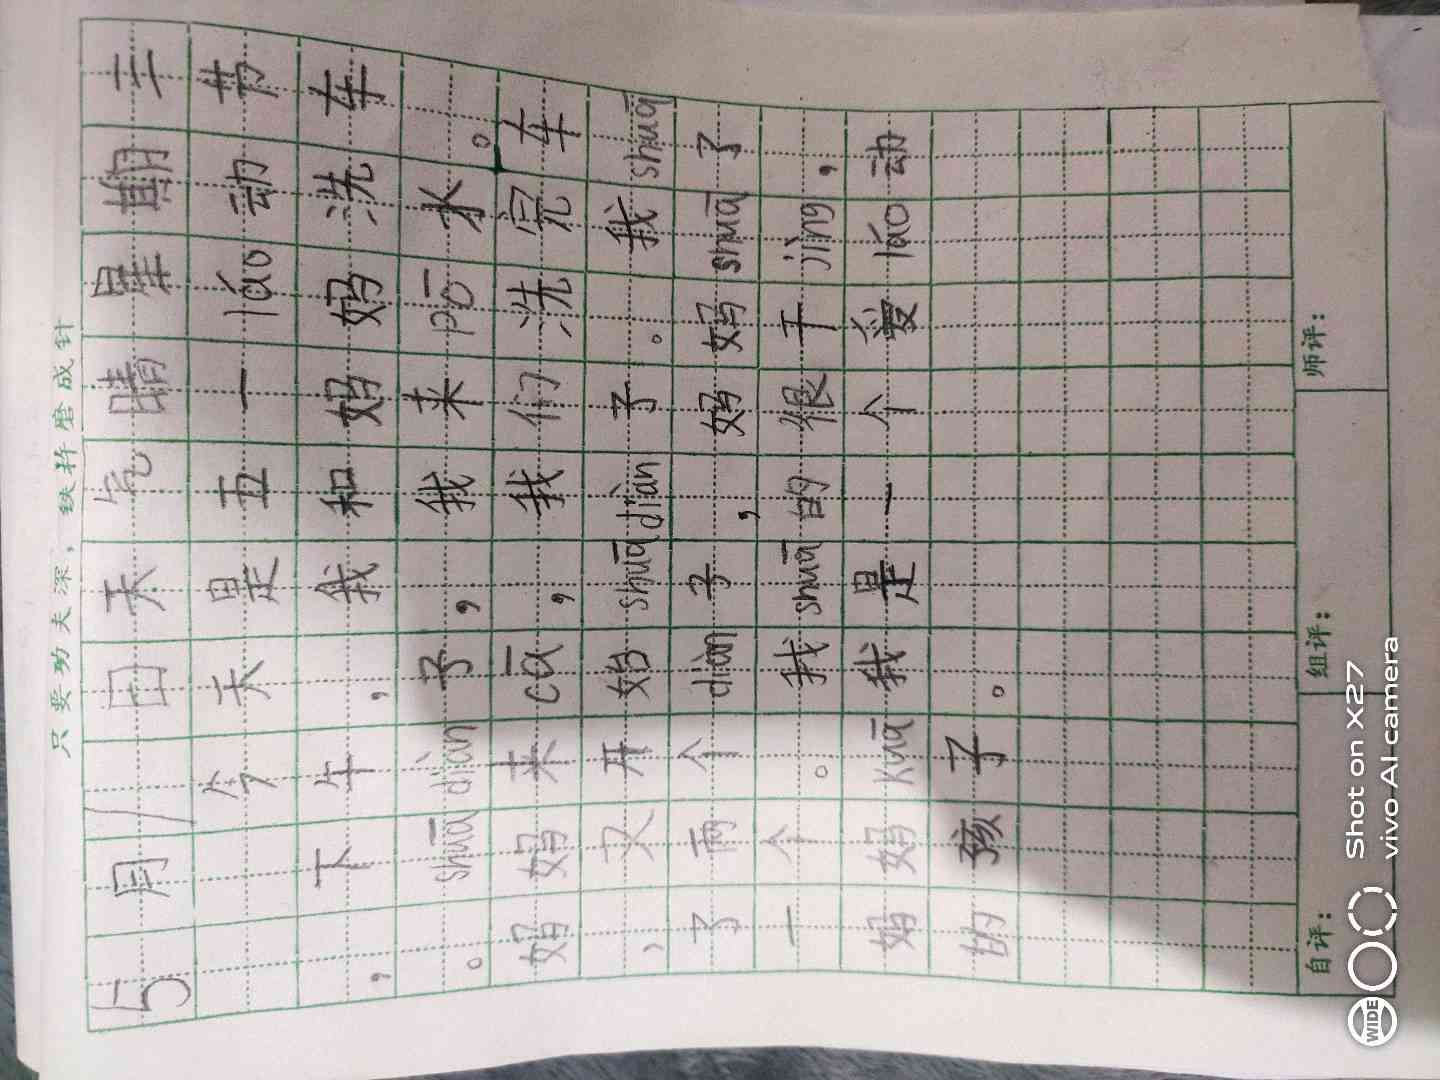 只要功夫深，铁杵磨成针
5月1日天气晴星期三
今天是五一láo动节
，下午，我和妈妈洗车
。shuā diàn子，我来pō水。
妈妈来cā，我们洗完车
，又开始shuā diàn子。我shuā
了两个diàn子，妈妈shuā了
一个。我shuā的很干jìng，
妈妈kuā我是一个爱láo动
的孩子。
自评： 组评： 师评：
WIDE
Shot on X27
vivo AI camera